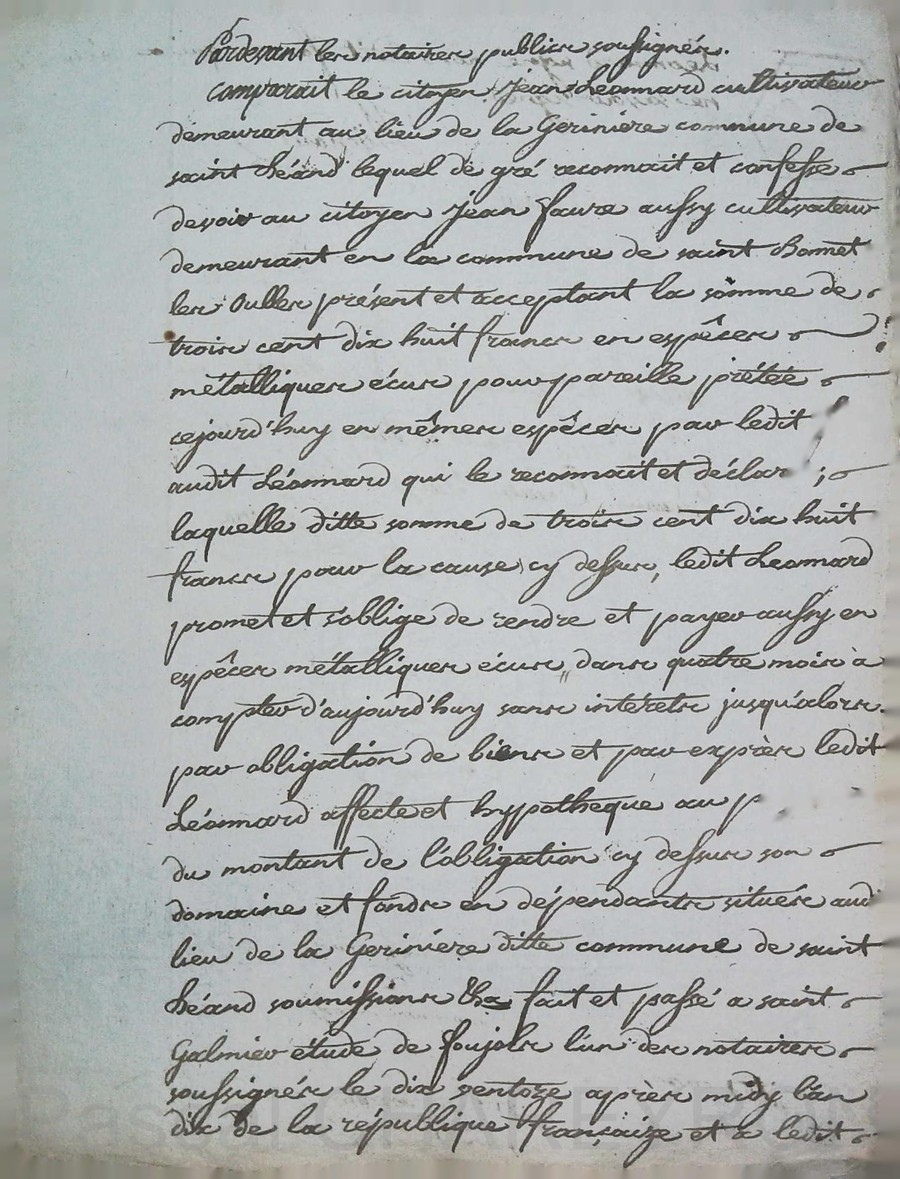 Pardevant les notaires publics soussignés.
comparait le citoyen Jean Leonnard cultivateur
demeurant au lieu de la Geriniere commune de
saint héand lequel de gré reconnait et confesse
devoir au citoyen Jean faure aussy cultivateur
demeurant en la commune de saint bonnet
les Oulles présent et acceptant la somme de
trois cent dix huit francs en espêces
métalliques écus pour pareille prétée
cejourd'huy en mêmes espêces par ledit
audit Léonnard qui le reconnait et déclar
laquelle ditte somme de trois cent dix huit
francs pour la cause cy dessus, ledit Leonnard
promet et s'oblige de rendre et payer aussy en
espêces métalliques écus, dans quatre mois à
compter d'aujourd'huy sans intérets jusqu'alors.
par obligation de biens et par exprès ledit
Léonnard affecte et hypotheque au p
du montant de l'obligation cy dessus son
domaine et fonds en dépendants situés aud
lieu de la Geriniere ditte commune de saint
héand soumissions &ca fait et passé a saint
Galmier étude de foujols l'un des notaires
soussignés le dix ventoze après midy l'an
dix de la république françaize et a ledit